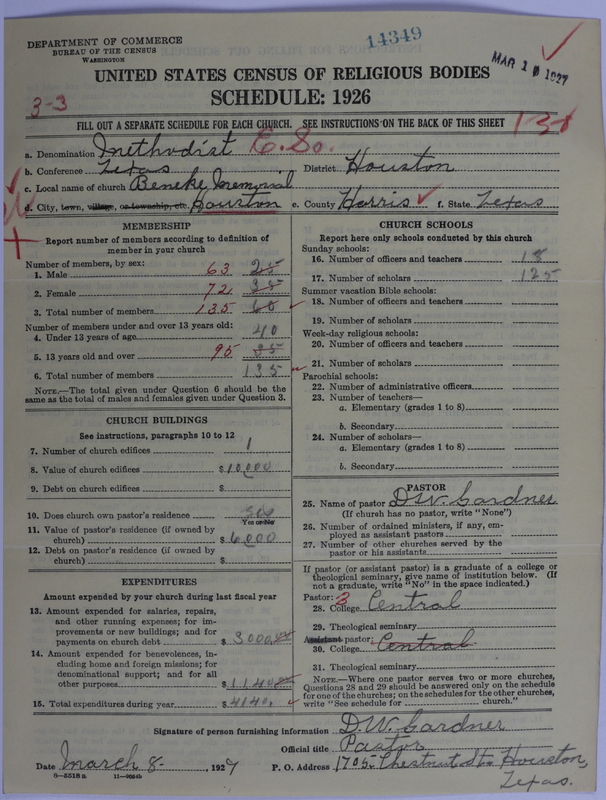 DEPARTMENT OF COMMERCE
BUREAU OF THE CENSUS
WASHINGTON
14349
MAR 10 1927
UNITED STATES CENSUS OF RELIGIOUS BODIES
SCHEDULE: 1926
3-3
FILL OUT A SEPARATE SCHEDULE FOR EACH CHURCH. SEE INSTRUCTIONS ON THE BACK OF THIS SHEET
a. Denomination Methodist E. So.
b. Conference Texas District Houston
c. Local name of church Beneke Memorial
d. City, town, village, or township, etc. Houston e. County Harris f. State Texas
MEMBERSHIP
Report number of members according to definition of member in your church
Number of members, by sex:
1. Male 63 25
2. Female 72 35
3. Total number of members 135 60
Number of members under and over 13 years old:
4. Under 13 years of age 40
5. 13 years old and over 95
6. Total number of members 135
NOTE.—The total given under Question 6 should be the same as the total of males and females given under Question 3.
CHURCH BUILDINGS
See instructions, paragraphs 10 to 12
7. Number of church edifices 1
8. Value of church edifices $10,000
9. Debt on church edifices $
10. Does church own pastor's residence
Yes or No
11. Value of pastor's residence (if owned by church) $6,000
12. Debt on pastor's residence (if owned by church) $
EXPENDITURES
Amount expended by your church during last fiscal year
13. Amount expended for salaries, repairs, and other running expenses; for improvements or new buildings; and for payments on church debt $3000
14. Amount expended for benevolences, including home and foreign missions; for denominational support; and for all other purposes $1144
15. Total expenditures during year $4144
CHURCH SCHOOLS
Report here only schools conducted by this church
Sunday schools:
16. Number of officers and teachers 18
17. Number of scholars 125
Summer vacation Bible schools:
18. Number of officers and teachers
19. Number of scholars
Week-day religious schools:
20. Number of officers and teachers
21. Number of scholars
Parochial schools:
22. Number of administrative officers
23. Number of teachers—
a. Elementary (grades 1 to 8)
b. Secondary
24. Number of scholars—
a. Elementary (grades 1 to 8)
b. Secondary
PASTOR
25. Name of pastor D.W. Gardner
(If church has no pastor, write "None")
26. Number of ordained ministers, if any, employed as assistant pastors
27. Number of other churches served by the pastor or his assistants
If pastor (or assistant pastor) is a graduate of a college or theological seminary, give name of institution below. (If not a graduate, write "No" in the space indicated.)
Pastor: 3
28. College Central
29. Theological seminary
Assistant pastor:
30. College Central
31. Theological seminary
NOTE.—Where one pastor serves two or more churches, Questions 28 and 29 should be answered only on the schedule for one of the churches; on the schedules for the other churches, write "See schedule for church."
Signature of person furnishing information D.W. Gardner
Official title Pastor
Date March 8-, 1927 P. O. Address 1705- Chestnut St. Houston,
Texas.
8-5518a 11-9054b